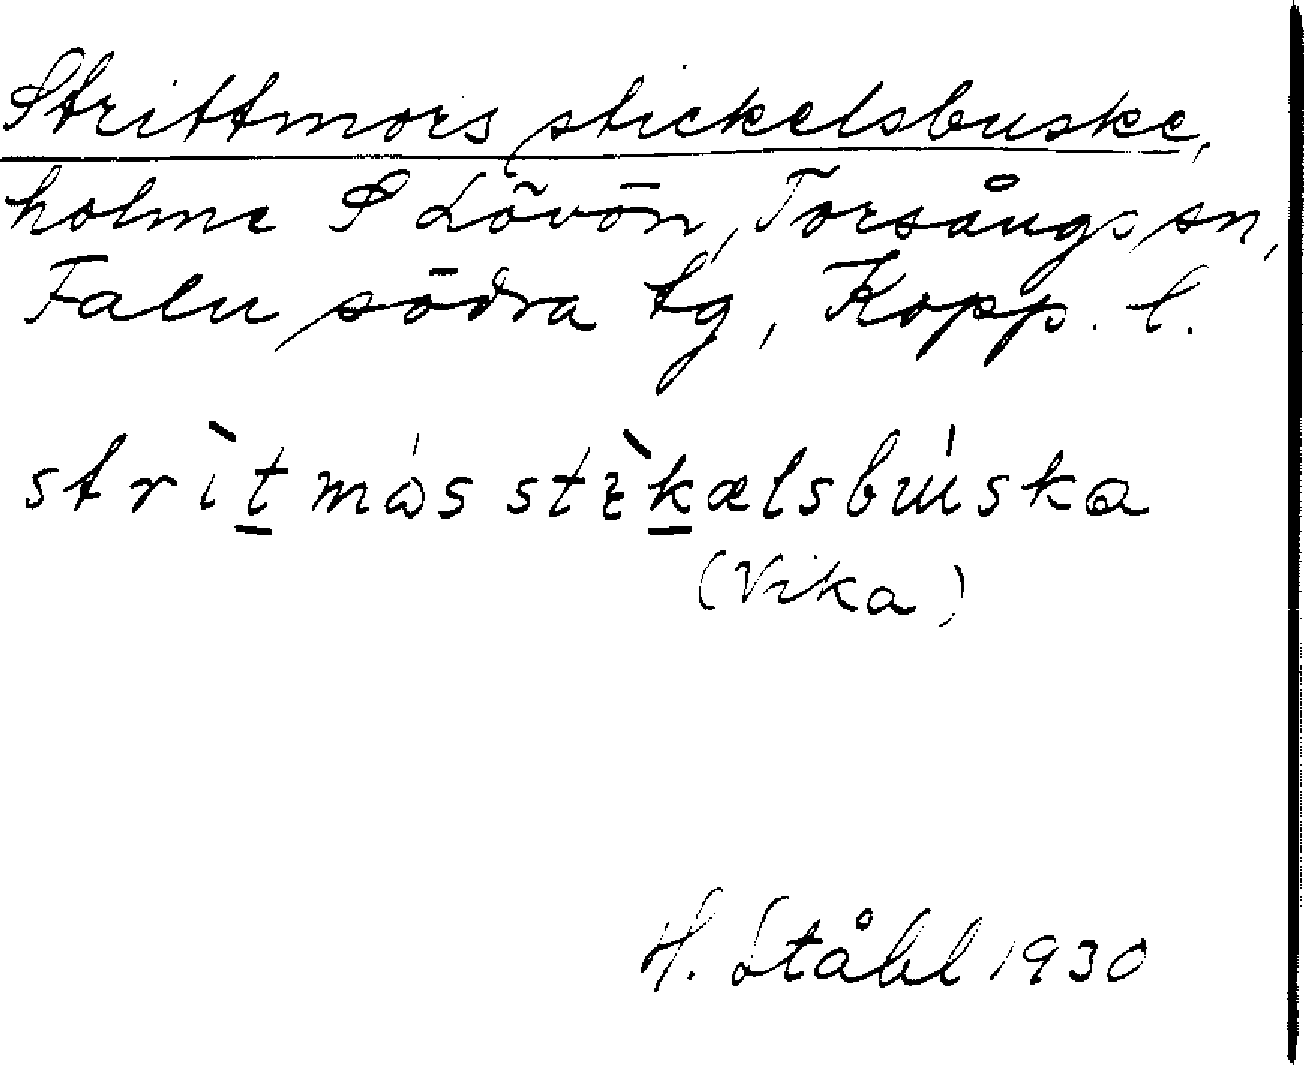 Strittmors stickelsbuske,
holme S Lövön, Torsångs sn,
Falu södra tg, Kopp. l.
strìt̲ mås stìk̲ælsbuska
(Vika)
H. Ståhl 1930